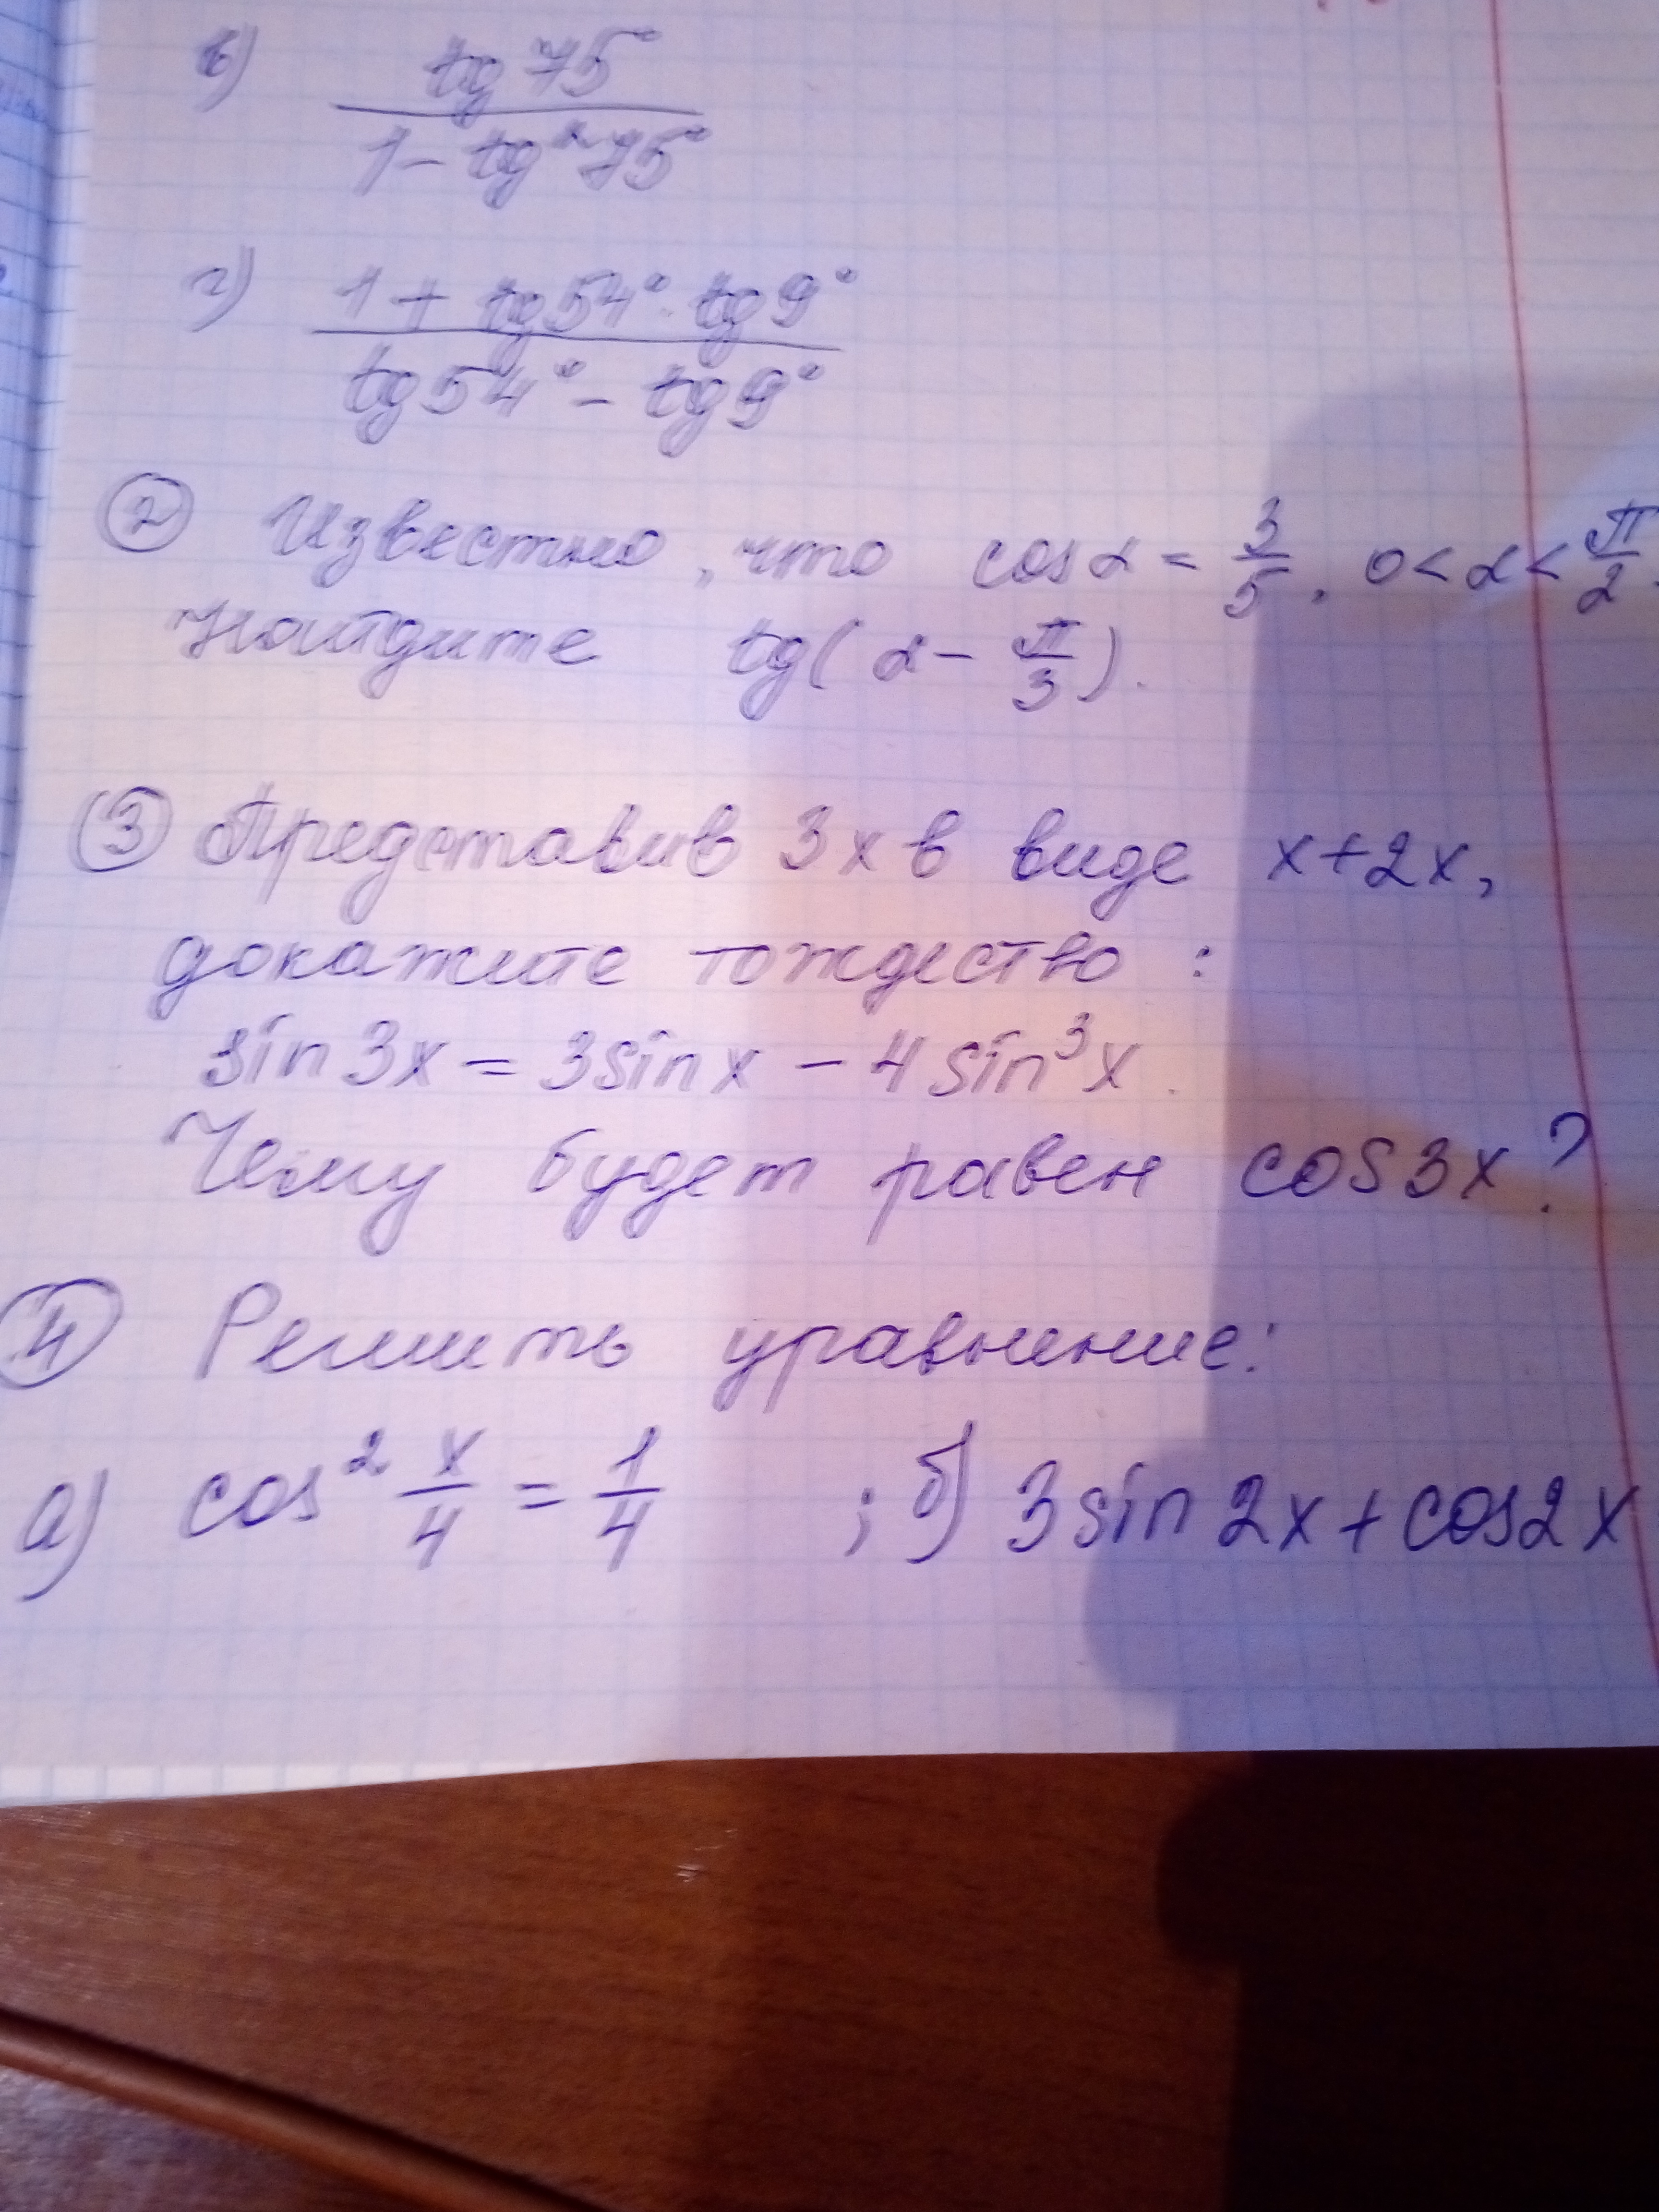 в) tg 75° / (1 - tg² 75°)
г) (1 + tg 54° · tg 9°) / (tg 54° - tg 9°)
② Известно, что cos α = 3/5, 0 < α < π/2.
Найдите tg(α - π/3).
③ Представив 3x в виде x+2x,
докажите тождество:
sin 3x = 3 sin x - 4 sin³ x.
Чему будет равен cos 3x?
④ Решить уравнение:
а) cos² x/4 = 1/4 ; б) 3 sin 2x + cos 2x